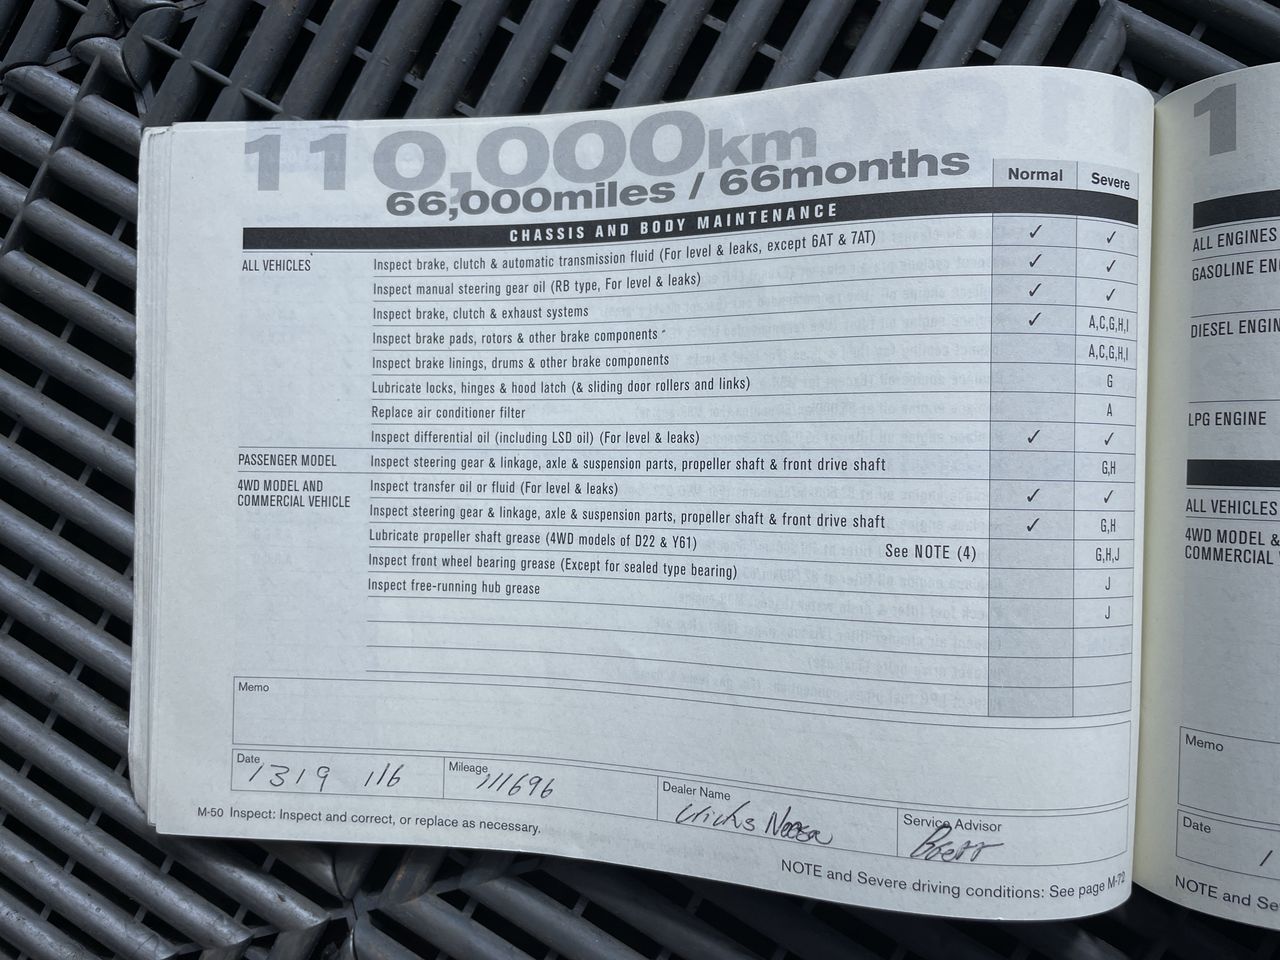 110,000km
66,000miles / 66months
Normal Severe
CHASSIS AND BODY MAINTENANCE
ALL VEHICLES Inspect brake, clutch & automatic transmission fluid (For level & leaks, except 6AT & 7AT) ✓ ✓
Inspect manual steering gear oil (RB type, For level & leaks) ✓ ✓
Inspect brake, clutch & exhaust systems ✓ ✓
Inspect brake pads, rotors & other brake components ✓ A,C,G,H,I
Inspect brake linings, drums & other brake components A,C,G,H,I
Lubricate locks, hinges & hood latch (& sliding door rollers and links) G
Replace air conditioner filter A
Inspect differential oil (including LSD oil) (For level & leaks) ✓ ✓
PASSENGER MODEL Inspect steering gear & linkage, axle & suspension parts, propeller shaft & front drive shaft G,H
4WD MODEL AND Inspect transfer oil or fluid (For level & leaks) ✓ ✓
COMMERCIAL VEHICLE Inspect steering gear & linkage, axle & suspension parts, propeller shaft & front drive shaft ✓ G,H
Lubricate propeller shaft grease (4WD models of D22 & Y61) See NOTE (4) G,H,J
Inspect front wheel bearing grease (Except for sealed type bearing) J
Inspect free-running hub grease J
Memo
Date 13 19 116
Mileage 111696
Dealer Name
Service Advisor Brett
M-50 Inspect: Inspect and correct, or replace as necessary.
NOTE and Severe driving conditions: See page M-72
1
ALL ENGINES
GASOLINE EN
DIESEL ENGIN
LPG ENGINE
ALL VEHICLES
4WD MODEL &
COMMERCIAL
Memo
Date
NOTE and Se